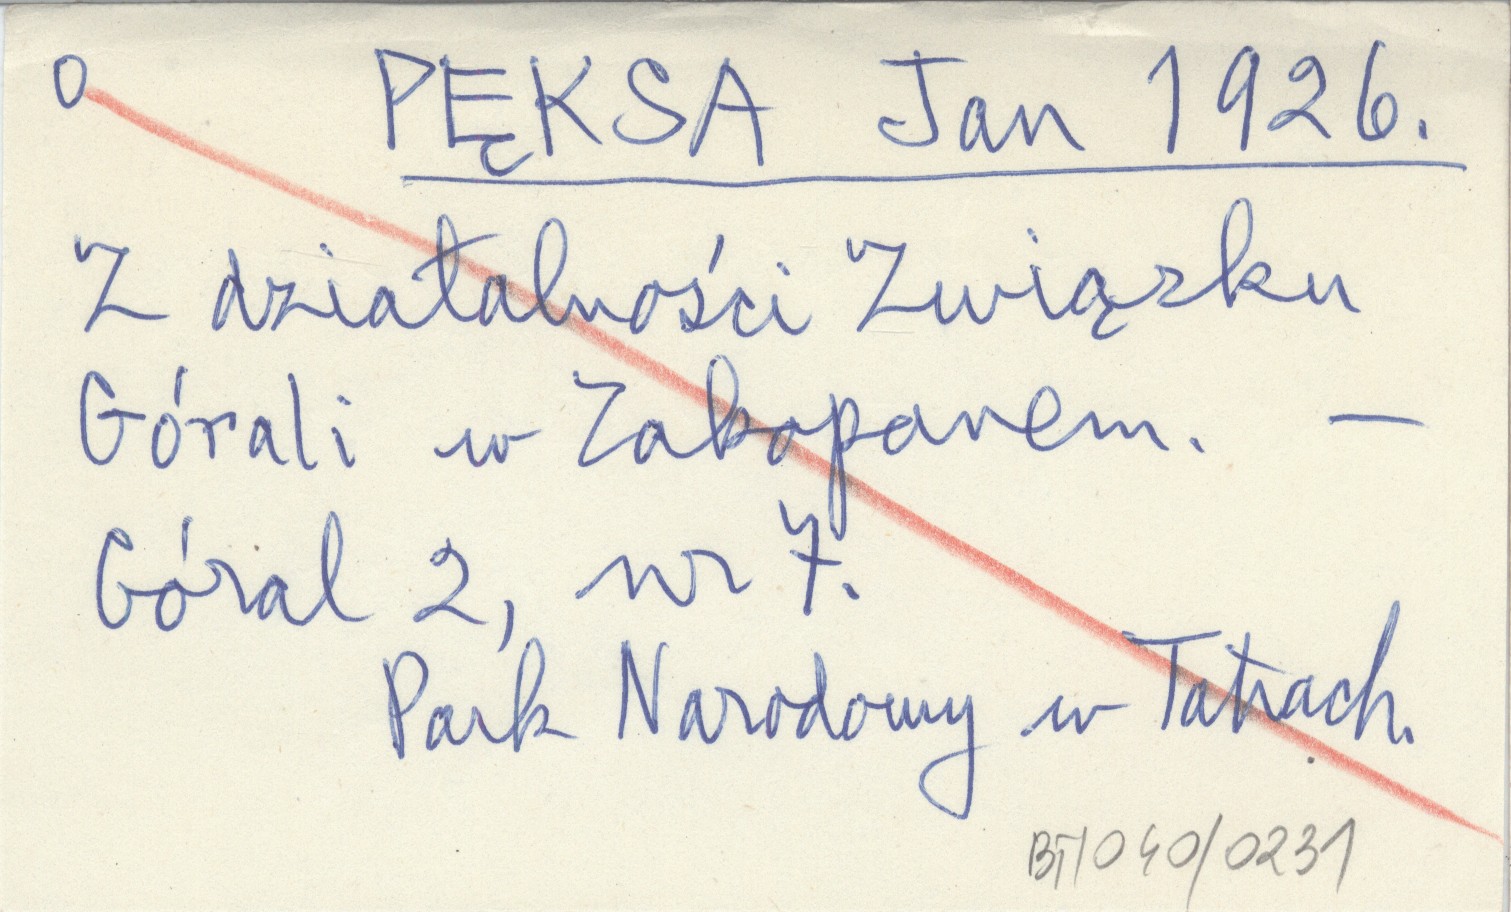 O PĘKSA Jan 1926.
Z działalności Związku
Górali w Zakopanem. —
Góral 2, nr 7.
Park Narodowy w Tatrach.
BT/040/0231